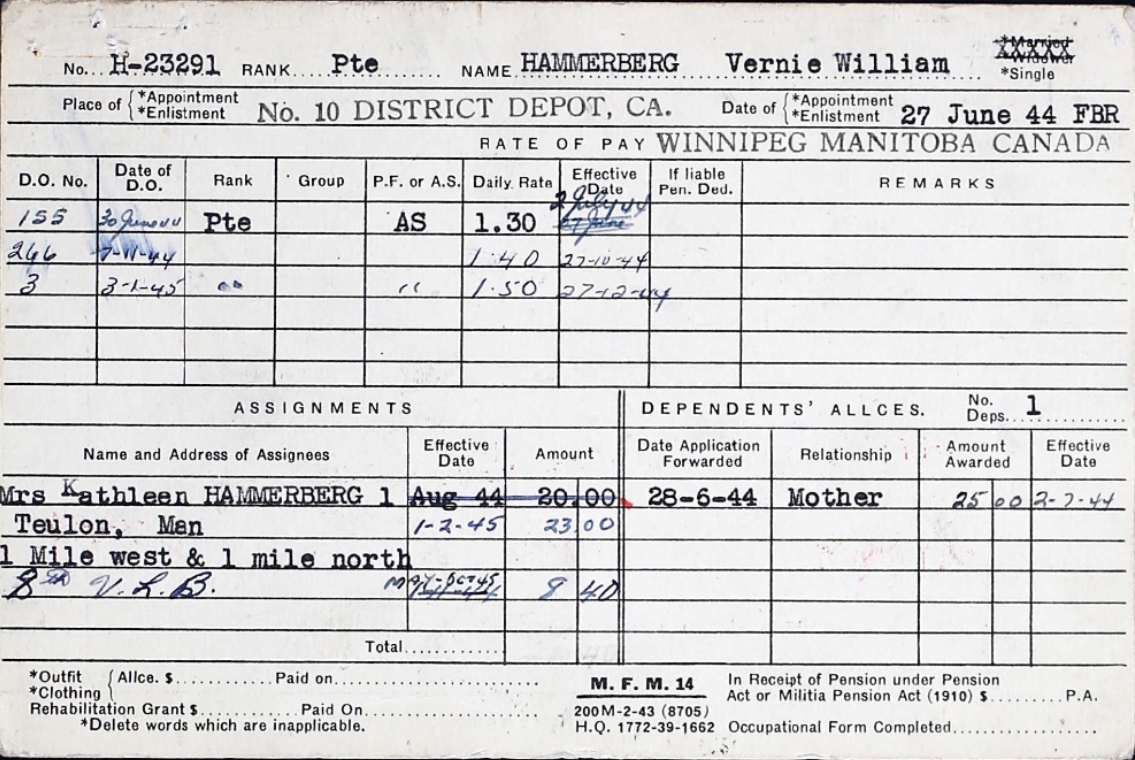 No. H-23291 RANK Pte NAME HAMMERBERG Vernie William *Married
*Widower
*Single
Place of { *Appointment *Enlistment No. 10 DISTRICT DEPOT, CA. Date of { *Appointment *Enlistment 27 June 44 FBR
RATE OF PAY WINNIPEG MANITOBA CANADA
D.O. No. Date of D.O. Rank Group P.F. or A.S. Daily Rate Effective Date If liable Pen. Ded. REMARKS
2 July 44
155 30 June 44 Pte AS 1.30 27 June
266 7-11-44 1.40 27-10-44
3 3-1-45 " " 1.50 27-12-44
ASSIGNMENTS DEPENDENTS' ALLCES. No. Deps. 1
Name and Address of Assignees Effective Date Amount Date Application Forwarded Relationship Amount Awarded Effective Date
Mrs Kathleen HAMMERBERG 1 Aug 44 20.00 28-6-44 Mother 25 00 2-7-44
Teulon, Man 1-2-45 23 00
1 Mile west & 1 mile north
8th V.L.B. 8 40
Total
*Outfit { Allce. $ Paid on
*Clothing {
Rehabilitation Grant $ Paid On
*Delete words which are inapplicable.
M. F. M. 14
200M-2-43 (8705)
H.Q. 1772-39-1662
In Receipt of Pension under Pension
Act or Militia Pension Act (1910) $ P.A.
Occupational Form Completed